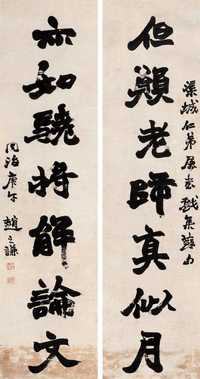 城仁弟屬書戲集蘇句
但願老師真似月
亦知驍將解論文
同治庚午趙之謙